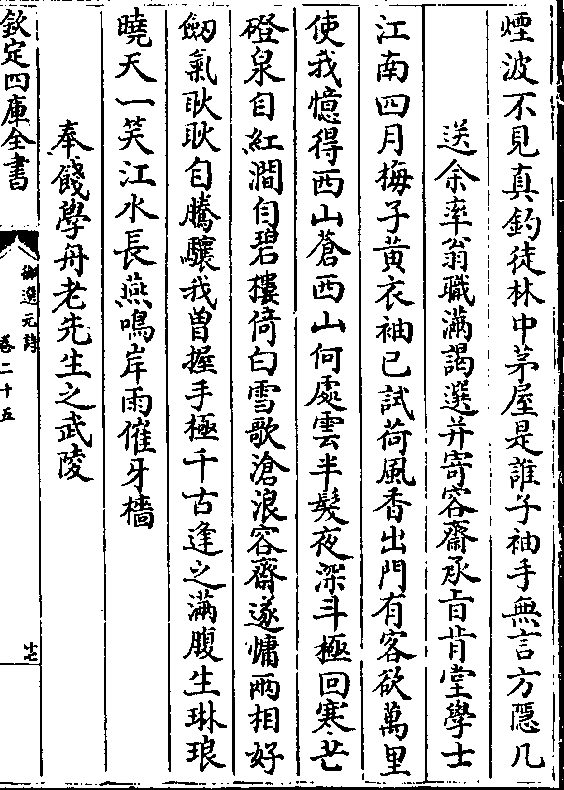 煙波不見真釣徒林中茅屋是誰子袖手無言方隱几
送余率翁職滿謁選并寄容齋承旨肯堂學士
江南四月梅子黃衣袖已試荷風香出門有客欲萬里
使我憶得西山蒼西山何處雲半髮夜深斗極回寒芒
磴泉自紅澗自碧樓倚白雪歌滄浪容齋遂慵兩相好
劒氣耿耿自騰驤我曽握手極千古逢之滿腹生琳琅
曉天一笑江水長燕鳴岸雨催牙檣
奉餞學舟老先生之武陵
欽定四庫全書
御選元詩
卷二十五
十七